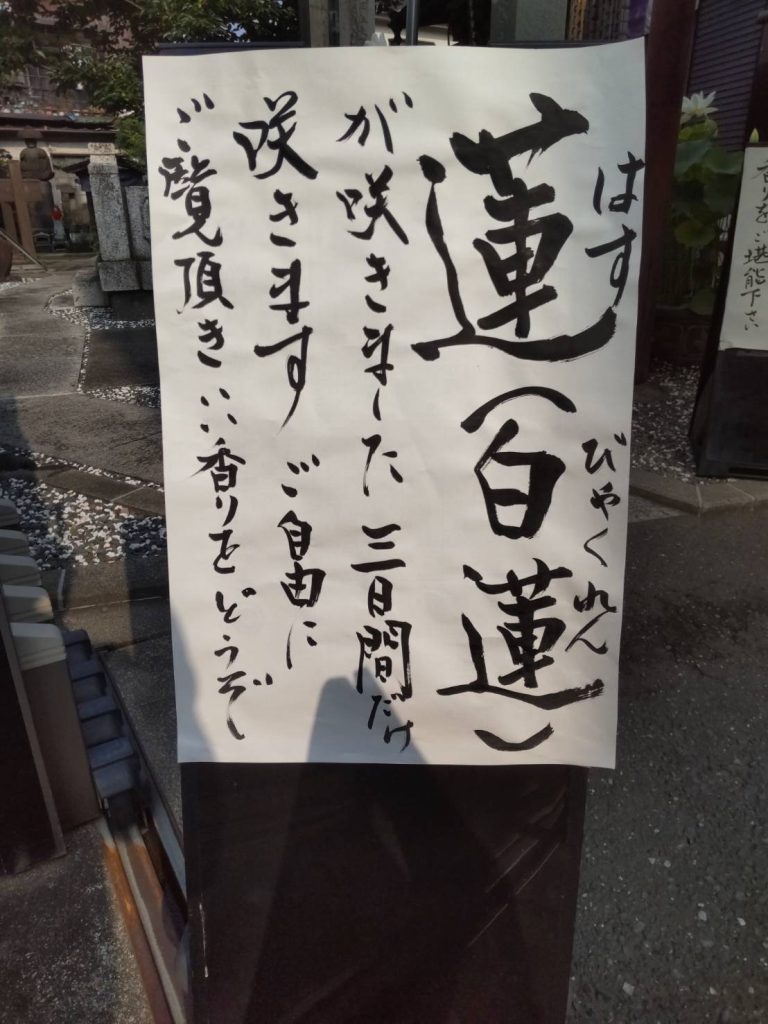 はす
びゃくれん
蓮(白蓮)
が咲きました 三日間だけ
咲きます ご自由に
ご覧頂きいい香りをどうぞ
香りをご堪能下さい